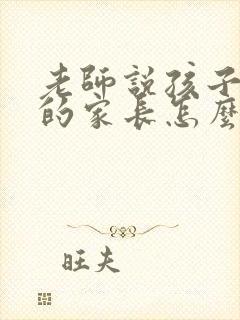 老師說孩子
的家長怎麼
旺夫